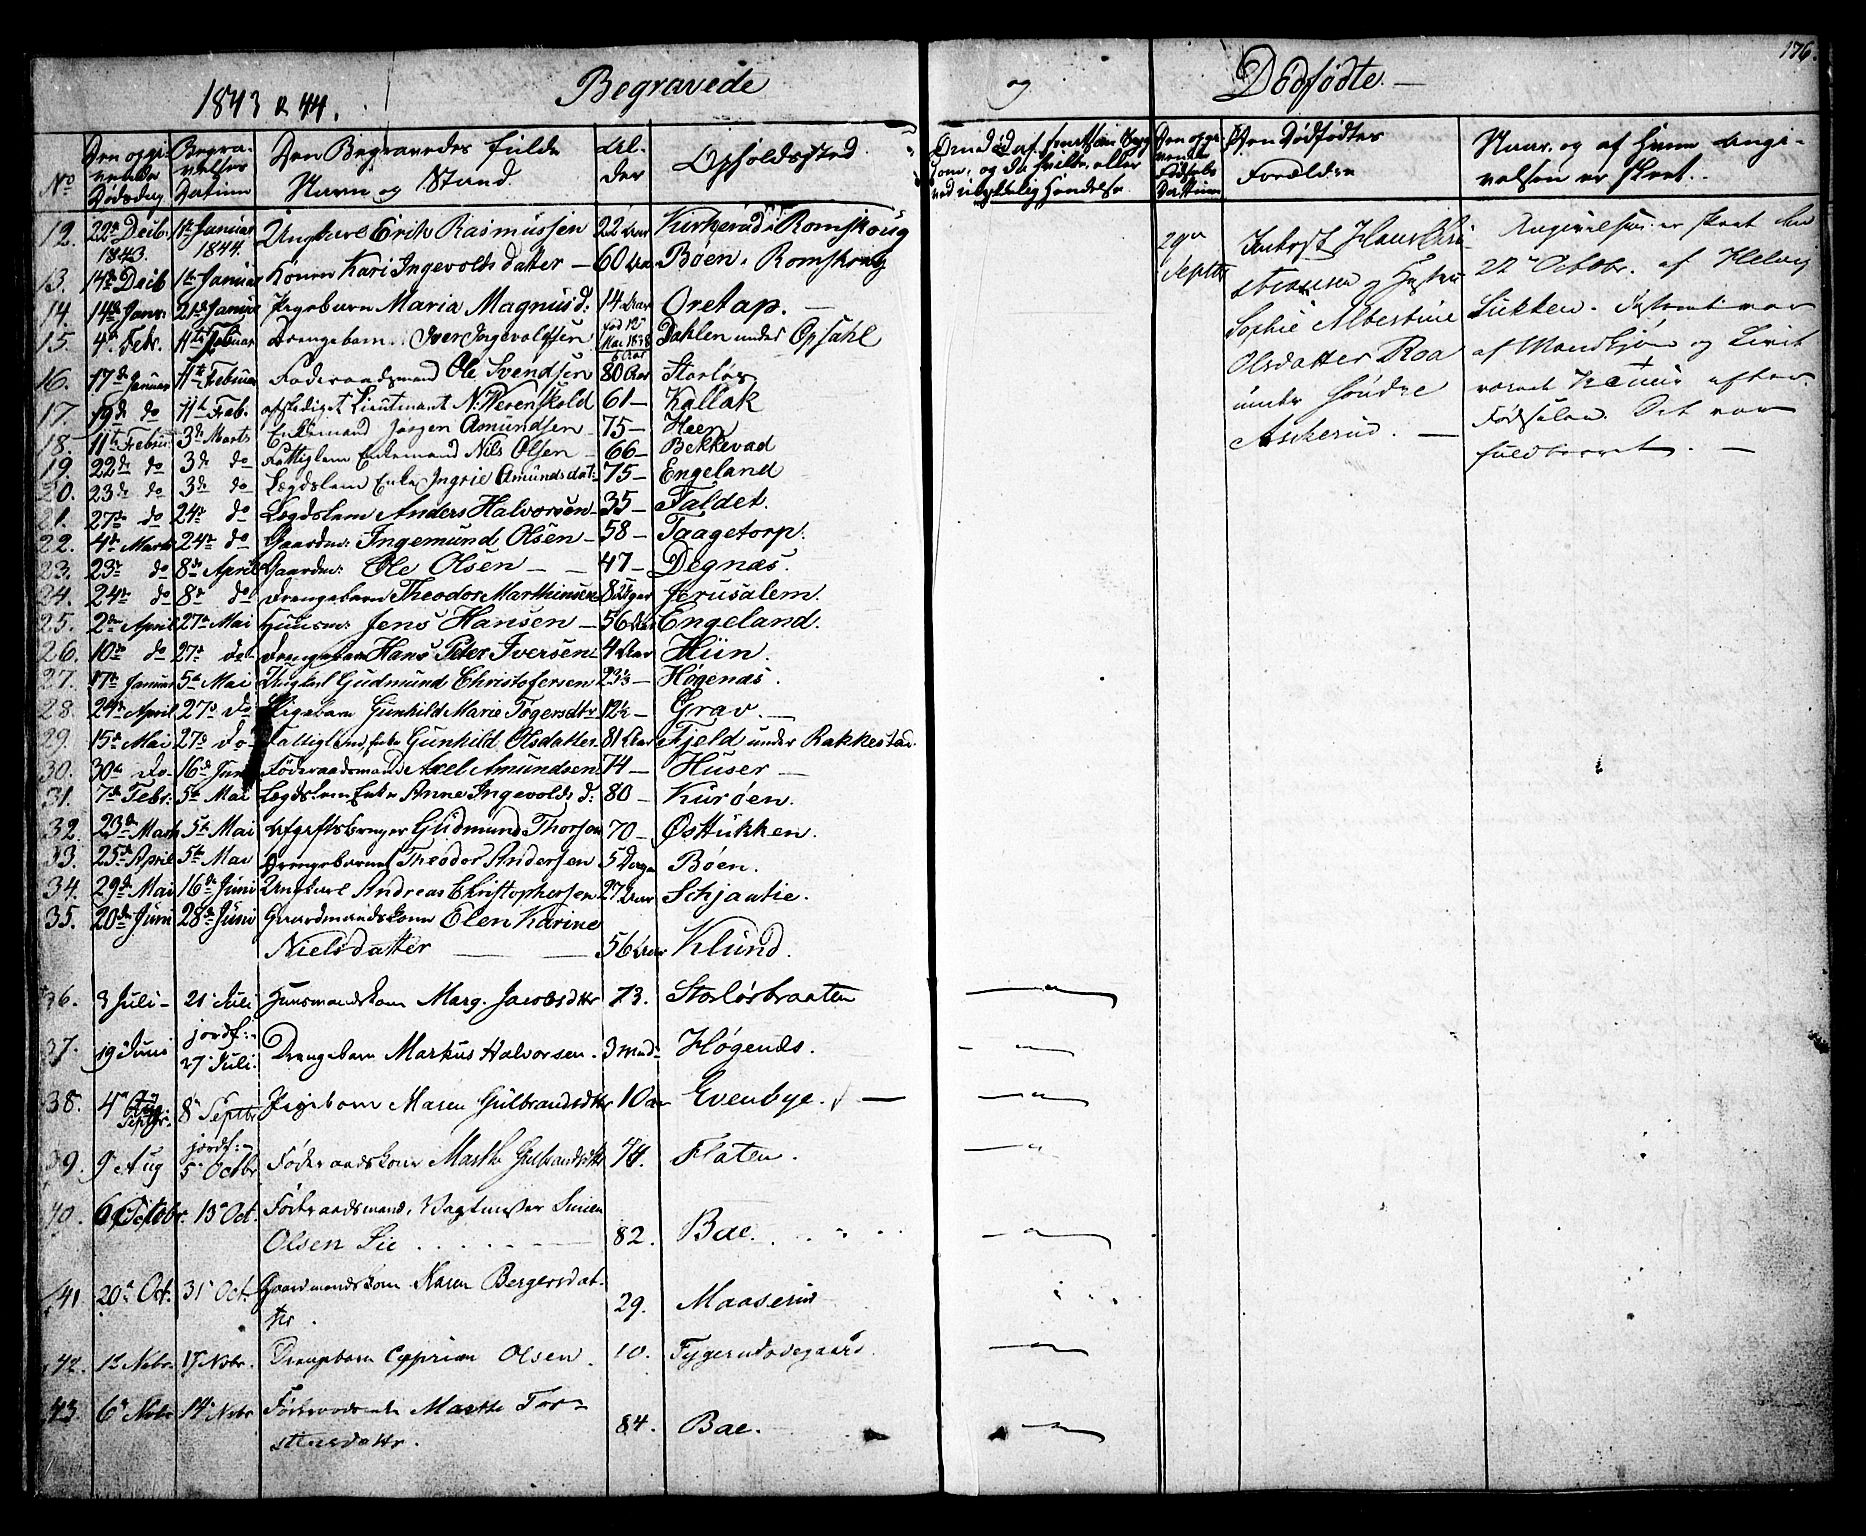 176.
1843 & 44.
Begravede og Dødfødte. —
No
Den opgivende Dødsdag
Begravelses Datum
Den Begravedes fulde Navn og Stand.
Alder
Opholdssted
Om død af smitsom Sygdom, og da hvilken, eller ved ulykkelig Hændelse
Den opgivende Fødsels Dattum
Den Dødfødtes Forældre
Naar, og af hvem Angivelsen er skeet.
12. 22de Decb. 1843. 1te Januar 1844. Ungkarl Erik Rasmussen 22 Aar Kirkerud i Romskoug
13. 14de Decb 1te Januar Konen Kari Ingevoldsdatter — 60 Aar Bøen i Romskoug
14. 14de Janr: 21de Januar Pigebarn Maria Magnusd: 14 Aar Oretap. —
15. 4de Febr. 11te Februar Drengebarn Iver Ingevoldsen født 12te Mai 1838 6 Aar Dahlen under Opsahl
16. 17de Januar 11te Februar Føderaadsmand Ole Svendsen 80 Aar Storløs
17. 19de do 11te Feb. afskediget Lieutenant N. Werenskold 61 — Kallak
18. 11te Februar 3de Marts Enkemand Jørgen Amundsen — 75 — Heen
19. 22de do 3de do Fattiglem Enkemand Nils Olsen — 66 — Bekkevad
20. 23de do 3de do Lægdslem Enke Ingrie Amundsdat: 75 — Engeland
21. 27de do 24de do Lægdslem Anders Halvorsen — 35 — Taldet.
22. 4de Marts 24de do Gaardm: Ingemund Olsen — 58 — Taagetorp.
23. 23de do 8de April Gaardm: Ole Olsen — — 47 — Degnæs.
24. 24de do 8de do Drengebarn Theodor Marthinsen 8 Uger Jerusalem.
25. 2den April 27de Mai Huusm: Jens Hansen — 56 Aar Engeland.
26. 10de do 27de do Drengebarn Hans Peter Iversen 4 Aar Hiin.
27. 17de Januar 5te Mai Ungkarl Gudmund Christofersen 23½ — Høgenæs.
28. 24de April 27de do Pigebarn Gunhild Marie Togersdtr 12½ — Grav. —
29. 15de Mai 27de do — Fattiglem Enke Gunhild Olsdatter 81 Aar Fjeld under Rakkestad
30. 30te do 16de Juni Føderaadsmand Axel Amundsen 74 — Huser —
31. 7de Febr: 5te Mai Lægdslem Enke Anne Ingevolds d: 80 — Kurøen.
32. 23de Marts 5te Mai Afgiftsbruger Gudmund Thorsen 70 — Østtukken.
33. 25de April 5te Mai Drengebarnet Theodor Andersen 5 Dage Bøen.
34. 29de Mai 16de Juni Ungkarl Andreas Christophersen 27 Aar Schjaatie.
35. 20de Juni 28de Juni Gaardmandskone Elen Karine
Nielsdatter — — 56 Aar Klund.
36. 3 Juli — 21 Juli Huusmandskone Marg. Jacobsdttr 73. Storløsbraaten
37. 19 Juni jordf: 27 Juli: Drengebarn Markus Halvorsen. 3 Mnd: Høgenæs.
38. 4de Aug. Septbr. 8de Septbr Pigebarn Maren Gulbrandsdttr 10 Aar Evenbye. —
39. 9 Aug jordf: 5 Octbr Føderaadskone Marthe Gulbrandsdttr 74. Flaten.
40. 6 Octobr. 13de Oct. Føderaadsmand, Vagtmester Simen
Olsen Lie 82. Bae.
41 20de Oct. 31 Oct. Gaardmandskone Maren Bergersdat-
ter. 29. Maaserud
42. 12 Nvbr. 17 Nvbr. Drengebarn Cyprian Olsen. 10. Tygerudødegaard.
43 6te Nvbr 14de Nvbr Føderaadsenke Marthe Tor-
stensdattr. 84. Bae.
29de Septbr
Inderst Hans Chri-
stiansen og Hustru
Sophie Albertine
Olsdatter Roa
under Søndre
Askerud. —
Angivelsen er skeet den
22de Octobr. af Helvig
Tukken. Fosteret var
af Mandkjøn og Livet
varet
Fødselen. Det var
fuldbaaret. —